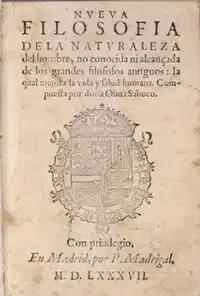 NVEVA
FILOSOFIA
DELA NATVRALEZA
del hombre, no conocida ni alcançada
de los grandes filosofos antiguos: la
qual mejora la vida y salud humana. Com-
puesta por doña Oliua Sabuco.
Con priuilegio,
En Madrid, por P. Madrigal,
M. D. LXXXVII.